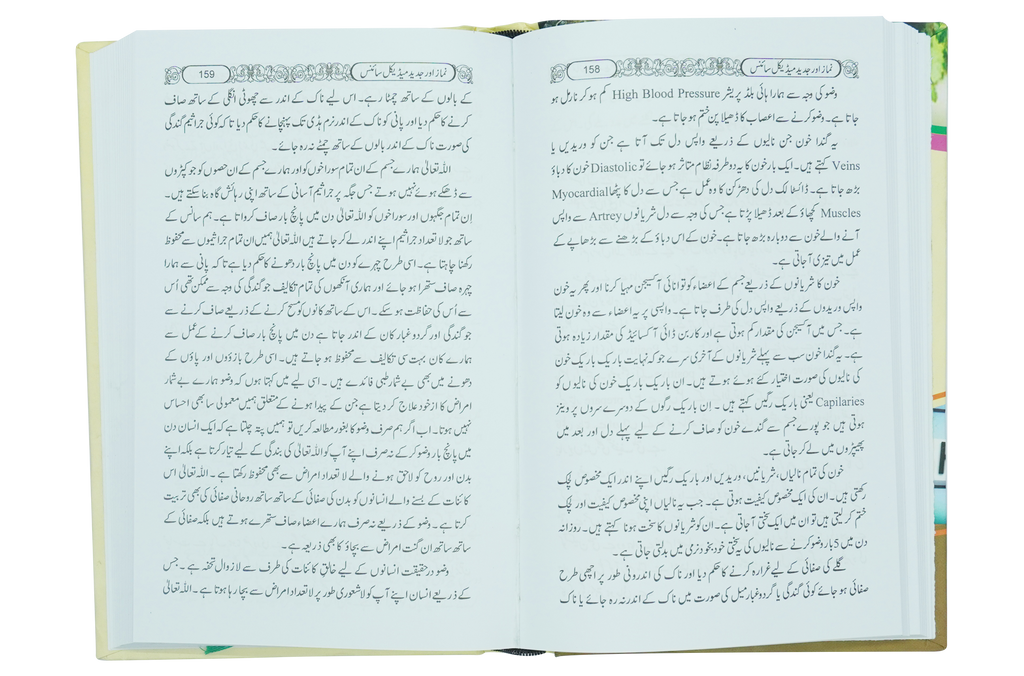 نماز اور جدید میڈیکل سائنس
158
وضو کی وجہ سے ہمارا ہائی بلڈ پریشر High Blood Pressure کم ہو کر نارمل ہو
جاتا ہے۔ وضو کرنے سے اعصاب کا ڈھیلا پن ختم ہو جاتا ہے۔
یہ گندا خون جن نالیوں کے ذریعے واپس دل تک آتا ہے جن کو وریدیں یا
Veins کہتے ہیں۔ ایک بار خون کا یہ دو طرفہ نظام متاثر ہو جائے تو Diastolic خون کا دباؤ
بڑھ جاتا ہے۔ ڈائسٹا لک دل کی دھڑکن کا وہ عمل ہے جس سے دل کا پٹھا Myocardial
Muscles کچھاؤ کے بعد ڈھیلا پڑتا ہے جس کی وجہ سے دل شریانوں Artrey سے واپس
آنے والے خون سے دوبارہ بڑھ جاتا ہے۔ خون کے اس دباؤ کے بڑھنے سے بڑھاپے کے
عمل میں تیزی آجاتی ہے۔
خون کا شریانوں کے ذریعے جسم کے اعضاء کو توانائی آکسیجن مہیا کرنا اور پھر یہ خون
واپس وریدوں کے ذریعے واپس دل کی طرف جاتا ہے۔ واپسی پر یہ اعضاء سے وہ خون لیتا
ہے۔ جس میں آکسیجن کی مقدار کم ہوتی ہے اور کاربن ڈائی آکسائیڈ کی مقدار زیادہ ہوتی
ہے۔ یہ گندا خون سب سے پہلے شریانوں کے آخری سرے جو کہ نہایت باریک باریک خون
کی نالیوں کی صورت اختیار کئے ہوئے ہوتے ہیں۔ ان باریک باریک خون کی نالیوں کو
Capilaries یعنی باریک رگیں کہتے ہیں۔ اِن باریک رگوں کے دوسرے سروں پر وینز
ہوتی ہیں جو پورے جسم سے گندے خون کو صاف کرنے کے لیے پہلے دل اور بعد میں
پھیپڑوں میں لے کر جاتی ہے۔
خون کی تمام نالیاں، شریانیں، وریدیں اور باریک رگیں اپنے اندر ایک مخصوص لچک
رکھتی ہیں۔ ان کی ایک مخصوص کیفیت ہوتی ہے۔ جب یہ نالیاں اپنی مخصوص کیفیت اور لچک
ختم کر لیتی ہیں تو ان میں ایک سختی آجاتی ہے۔ ان کو شریانوں کا سخت ہونا کہتے ہیں۔ روزانہ
دن میں 5 بار وضو کرنے سے نالیوں کی یہ سختی خود بخود نرمی میں بدلتی جاتی ہے۔
گلے کی صفائی کے لیے غرارہ کرنے کا حکم دیا اور ناک کی اندرونی طور پر اچھی طرح
صفائی ہو جائے کوئی گندگی یا گرد و غبار میل کی صورت میں ناک کے اندر نہ رہ جائے یا ناک
نماز اور جدید میڈیکل سائنس
159
کے بالوں کے ساتھ چمٹا رہے۔ اس لیے ناک کے اندر سے چھوٹی انگلی کے ساتھ صاف
کرنے کا حکم دیا اور پانی کو ناک کے اندر نرم ہڈی تک پہنچانے کا حکم دیا تا کہ کوئی جراثیم گندگی
کی صورت ناک کے اندر بالوں کے ساتھ چمٹے نہ رہ جائے۔
اللہ تعالیٰ ہمارے جسم کے ان تمام سوراخوں کو اور ہمارے جسم کے ان حصوں کو جو کپڑوں
سے ڈھکے ہوئے نہیں ہوتے جس جگہ پر جراثیم آسانی کے ساتھ اپنی رہائش گاہ بنا سکتے ہیں۔
اِن تمام جگہوں اور سوراخوں کو اللہ تعالیٰ دن میں پانچ بار صاف کرواتا ہے۔ ہم سانس کے
ساتھ جو لاتعداد جراثیم اپنے اندر لے کر جاتے ہیں اللہ تعالیٰ ہمیں ان تمام جراثیموں سے محفوظ
رکھنا چاہتا ہے۔ اسی طرح چہرے کو دن میں پانچ بار دھونے کا حکم دیا ہے تا کہ پانی سے ہمارا
چہرہ صاف ستھرا ہو جائے اور ہماری آنکھوں کی تمام تکالیف جو گندگی کی وجہ سے ممکن تھی اُس
سے اُس کی حفاظت ہو سکے۔ اس کے ساتھ کانوں کو مسح کرنے کے ذریعے صاف کرنے سے
جو گندگی اور گرد و غبار کان کے اندر جاتا ہے دن میں پانچ بار صاف کرنے کے عمل سے
ہمارے کان بہت سی تکالیف سے محفوظ ہو جاتے ہیں۔ اسی طرح بازوؤں اور پاؤں کے
دھونے میں بھی بے شمار طبی فائدے ہیں۔ اسی لیے میں کہتا ہوں کہ وضو ہمارے بے شمار
امراض کا از خود علاج کر دیتا ہے جن کے پیدا ہونے کے متعلق ہمیں معمولی سا بھی احساس
نہیں ہوتا۔ اب اگر ہم صرف وضو کا بغور مطالعہ کریں تو ہمیں پتہ چلتا ہے کہ ایک انسان دن
میں پانچ بار وضو کر کے نہ صرف اپنے آپ کو اللہ تعالیٰ کی بندگی کے لیے تیار کرتا ہے بلکہ اپنے
بدن اور روح کو لاحق ہونے والے لاتعداد امراض سے بھی محفوظ رکھتا ہے۔ اللہ تعالیٰ اس
کائنات کے بسنے والے انسانوں کو بدن کی صفائی کے ساتھ ساتھ روحانی صفائی کی بھی تربیت
کرتا ہے۔ وضو کے ذریعے نہ صرف ہمارے اعضاء صاف ستھرے ہوتے ہیں بلکہ صفائی کے
ساتھ ساتھ ان گنت امراض سے بچاؤ کا بھی ذریعہ ہے۔
وضو در حقیقت انسانوں کے لیے خالقِ کائنات کی طرف سے لازوال تحفہ ہے۔ جس
کے ذریعے انسان اپنے آپ کو لاشعوری طور پر لاتعداد امراض سے بچا رہا ہوتا ہے۔ اللہ تعالیٰ